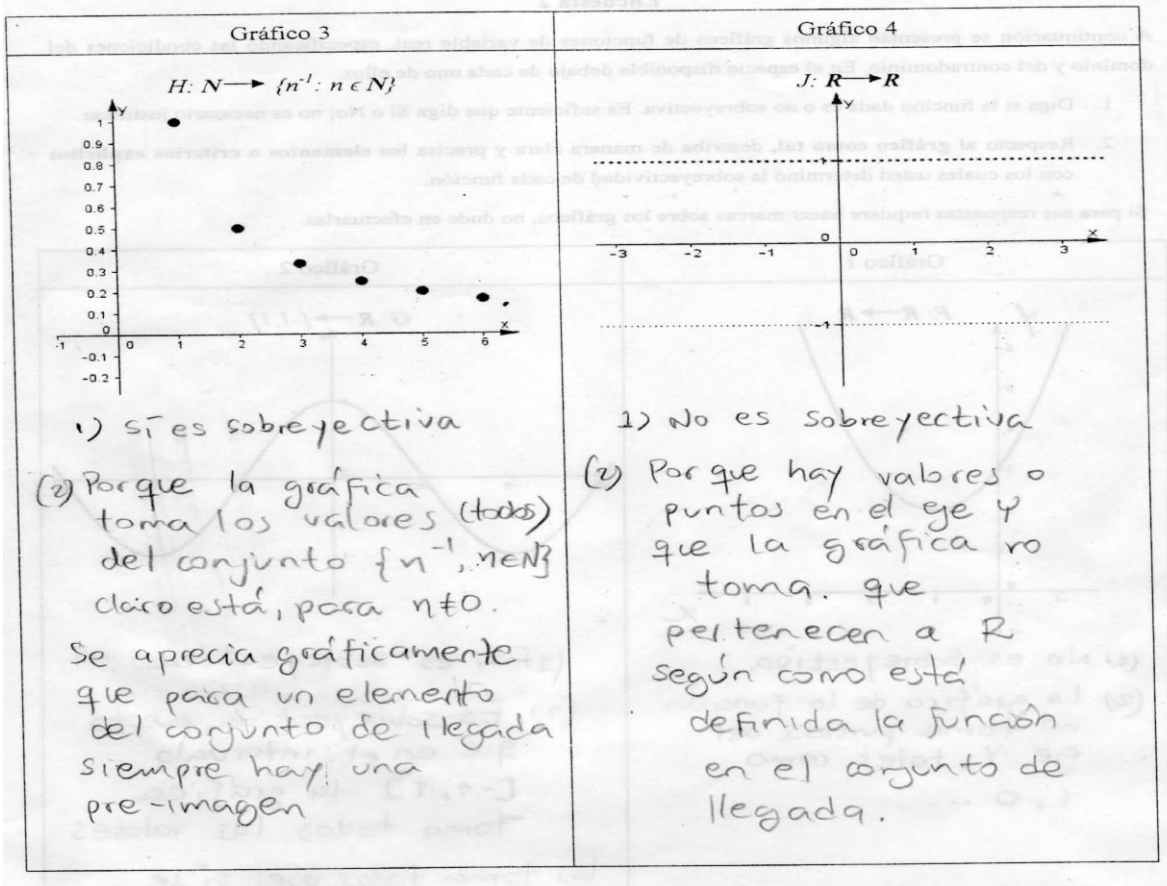 Gráfico 3
H: N → {n⁻¹ : n ∈ N}
Y
1
0.9
0.8
0.7
0.6
0.5
0.4
0.3
0.2
0.1
0
-0.1
-0.2
-1 0 1 2 3 4 5 6 x
1) sí es sobreyectiva
(2) Porque la gráfica
toma los valores (todos)
del conjunto {n⁻¹, n∈N}
claro está, para n≠0.
Se aprecia gráficamente
que para un elemento
del conjunto de llegada
siempre hay una
pre-imagen
Gráfico 4
J: R → R
Y
1
0
-3 -2 -1 0 1 2 3 x
-1
1) No es sobreyectiva
(2) Porque hay valores o
puntos en el eje Y
que la gráfica no
toma. que
pertenecen a R
según como está
definida la función
en el conjunto de
llegada.